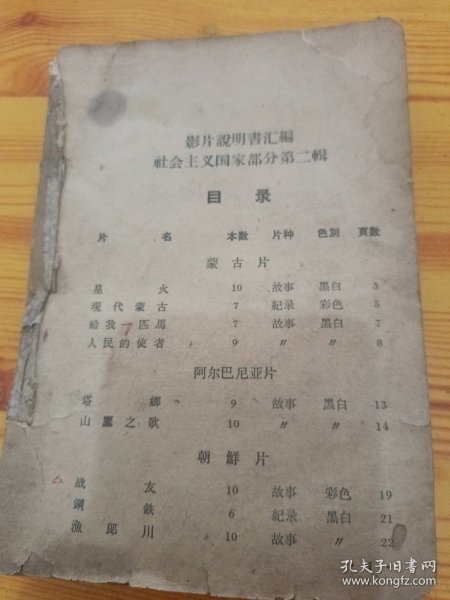 影片說明書汇編
社会主义国家部分第二輯
目录
片名 本数 片种 色別 頁数
蒙古片
星火 10 故事 黑白 3
現代蒙古 7 紀录 彩色 5
給我一匹馬 7 故事 黑白 7
人民的使者 9 〃 〃 8
阿尔巴尼亚片
塔娜 9 故事 黑白 13
山鷹之歌 10 〃 〃 14
朝鮮片
战友 10 故事 彩色 19
鋼鉄 6 紀录 黑白 21
漁郎川 10 故事 〃 22
孔夫子旧书网
book.kongfz.com